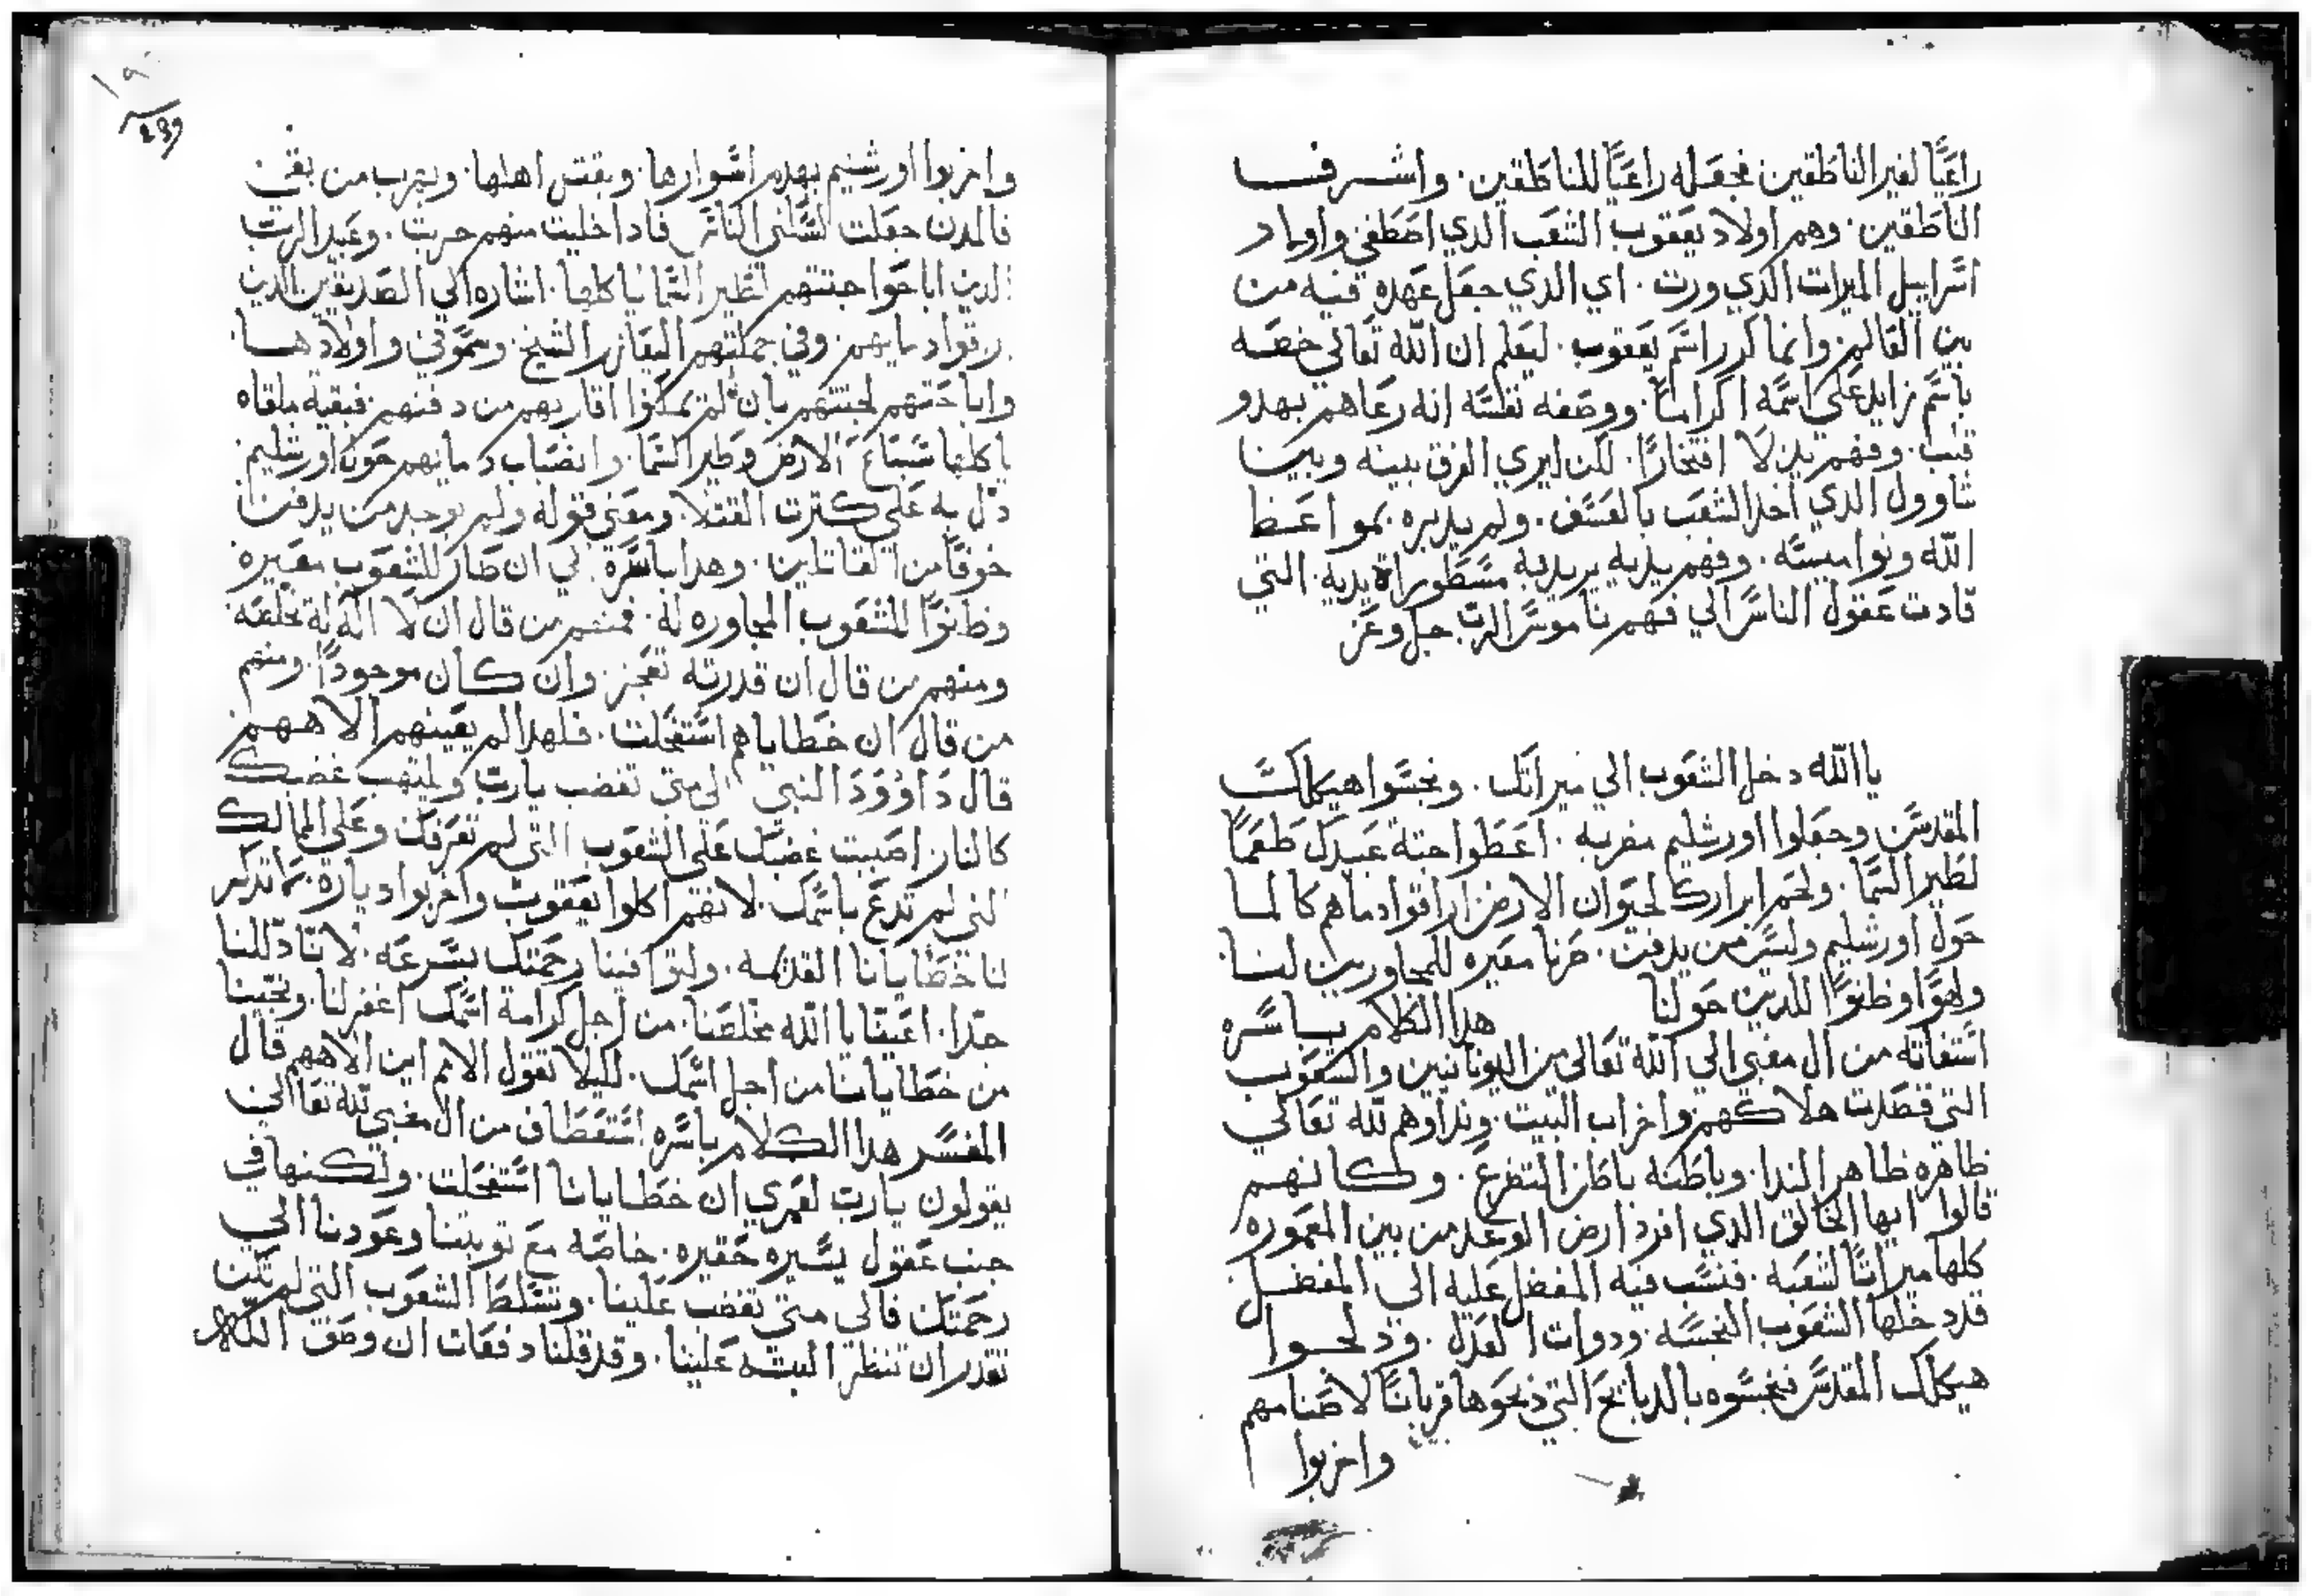 راعيًا لغير الناطقين فجعله راعيًا للناطقين. واشرف
الناطقين. وهم اولاد يعقوب الشعب الدي اصطفي واولاد
اسراييل الميرات الدي ورت. اي الدي جعل عهده فيه من
بين العالم. وانما كرر اسم يعقوب. ليعلم ان الله تعالي خصه
باسم زايد علي اسمه اكرامًا. ووصفه نفسه انه رعاهم بهدو
قلب. وفهم يديه لا افتخارًا. لكن ليري الفرق بينه وبين
شاوول الدي اخد الشعب بالعسف. ولم يدبره بمواعظ
الله ونواميسه. وفهم يديه يريد به مسطوراة يديه. التي
قادت عقول الناس الي فهم ناموس الرب جل وعز
يا الله دخل الشعوب الي ميراتك. ونجسوا هيكلك
المقدس وجعلوا اورشليم مخربه. اعطوا جتة عبيدك طعمًا
لطير السما. ولحم ابرارك لحيوان الارض اراقوا دماهم كالما
حول اورشليم وليس من يدفن. صرنا معيره للمجاورين لنا.
ولهوًا وطنزًا للدين حولنا هدا الكلام باسره
استغاته من ال مقبي الي الله تعالي من اليونانيين والشعوب
التي قصدت هلاكهم واخراب البيت. ونداوهم لله تعالي
ظاهره ظاهر الندا. وباطنه باطن التضرع. وكانهم
قالوا ايها الخالق الدي افرد ارض الوعد من بين المعموره
كلها ميراتًا لشعبه. فنسب فيه المفضل عليه الي المفضل
قد دخلها الشعوب النجسه. ودوات العدل. ودلحوا
هيكلك المقدس فنجسوه بالدبايح التي دبحوها قربانًا لاصنامهم
واخربوا
واخربوا اورشليم بهدم اسوارها. وبقتل اهلها. وبهرب من بقي
فالمدن جعلت لسكني الناس فادا خليت منهم خربت. وعبيد الرب
الدين اباحوا جتتهم لطير السما ياكلها. اشاره الي الصديقين الدين
ارقوا دمايهم. وفي جملتهم اليعازر الشيخ. وسموني واولادها
واباحتهم لجتتهم بان لم يمكنوا اقاربهم من دفنهم. فبقيه ملقاه
ياكلها سباع الارض وطير السما. وانصباب دمايهم حول اورشليم
دل به علي كترت القتلا. ومعني قوله ولم يوجد من يدفن
خوفًا من القاتلين. وهدا باسره الي ان صار للشعوب معيره
وطنزًا للشعوب المجاوره له. فمنهم من قال ان لا اله له يخلصه
ومنهم من قال ان قدرته تعجز. وان كان موجودًا. ومنهم
من قال ان خطاياهم استفحلت. فلهدا لم يعينهم الاههم
قال داوود النبي الي متي تغضب يارب ويلتهب غضبك
كالنار اصبب غضبك علي الشعوب التي لم تعرفك وعلي الممالك
التي لم تدع باسمك. لانهم اكلوا يعقوب واخربوا دياره. لا تدكر
لنا خطايانا القديمه. ولتوافينا رحمتك بسرعه. لاننا دللنا
جدا. اعينا يا الله مخلصنا. من اجل كرامة اسمك اغفر لنا. ونجينا
من خطايانا من اجل اسمك. لكيلا تقول الامم اين الاههم قال
المفسر هدا الكلام باسره استعطاف من ال مقبي لله تعالي
يقولون يارب لعمري ان خطايانا استفحلت. ولكنها في
جنب عقول يسيره حقيره. خاصه مع توبتنا وعودنا الي
رحمتك فالي متي تغضب علينا. وتسلط الشعوب التي لم تكن
تقدر ان تنظر البته علينا. وقد قلنا دفعات ان وصف الله